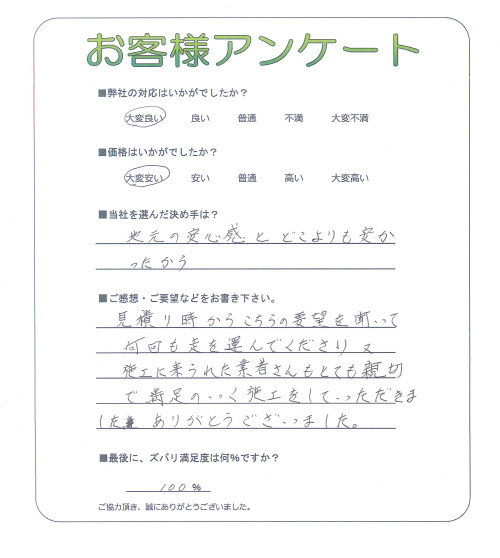 お客様アンケート
■弊社の対応はいかがでしたか？
大変良い 良い 普通 不満 大変不満
■価格はいかがでしたか？
大変安い 安い 普通 高い 大変高い
■当社を選んだ決め手は？
地元の安心感と どこよりも安か
ったから
■ご感想・ご要望などをお書き下さい。
見積り時からこちらの要望を断って
何回も足を運んでくださり 又
施工に来られた業者さんもとても親切
で満足のいく施工をしていただきま
した。 ありがとうございました。
■最後に、ズバリ満足度は何％ですか？
100％
ご協力頂き、誠にありがとうございました。